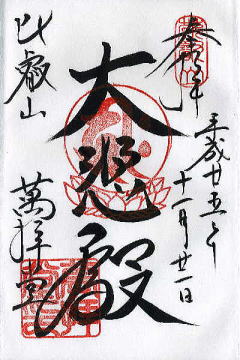 奉拝
平成廿五年
十一月廿一日
大悲殿
比叡山
萬拝堂